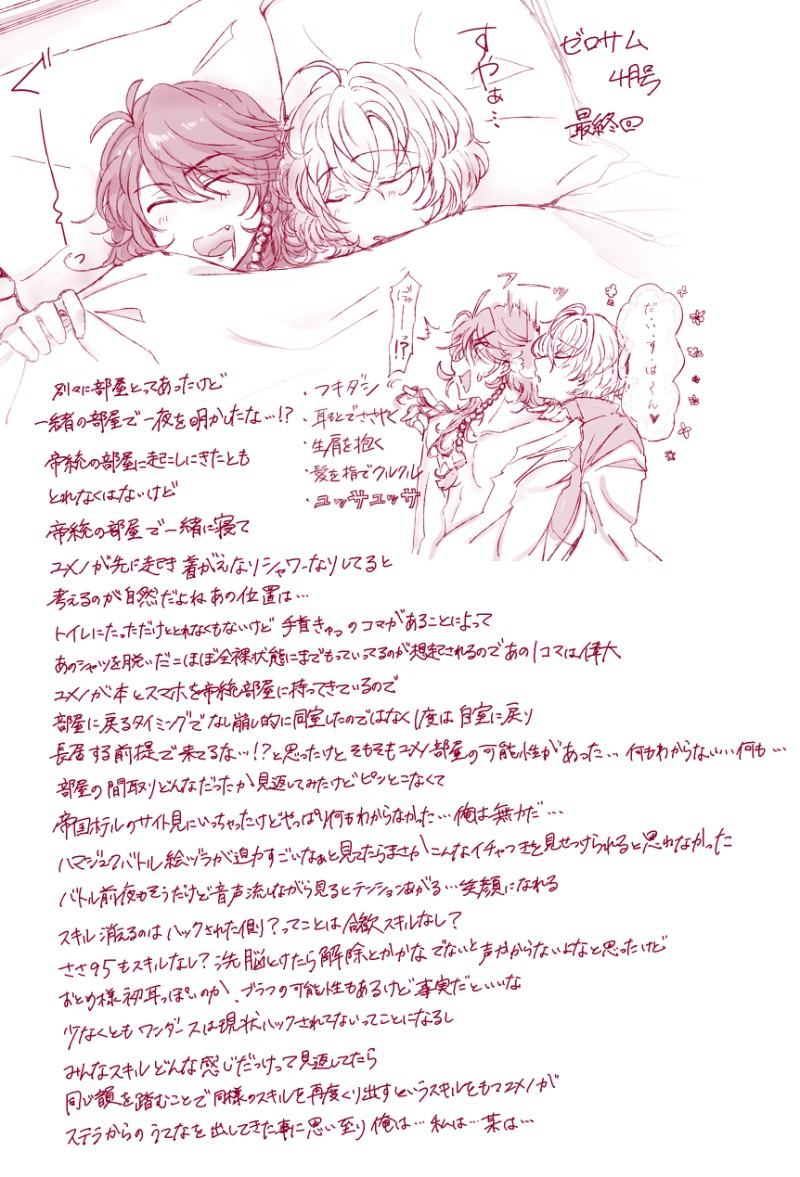 ゼロサム
4月号
最終回
すやぁ…
ぐ
っ
だ・い・す・は〜ん♥
に゛ゃー!?
・フキダシ
・耳もとでささやく
・生肩を抱く
・髪を指でクルクル
・ユッサユッサ
別々に部屋とってあったけど
一緒の部屋で一夜を明かしたな…!?
帝統の部屋に起こしにきたとも
とれなくはないけど
帝統の部屋で一緒に寝て
ユメノが先に起き 着がえなりシャワーなりしてると
考えるのが自然だよねあの位置は…
トイレにたっただけととれなくもないけど 手首きゅっのコマがあることによって
あのシャツを脱いだこほぼ全裸状態にまでもっていってるのが想起されるのであの1コマは偉大
ユメノが本とスマホを帝統部屋に持ってきているので
部屋に戻るタイミングでなし崩し的に同室したのではなく1度は自室に戻り
長居する前提で来てるな…!?と思ったけどそもそもユメノ部屋の可能性があった… 何もわからない…何も…
部屋の間取りどんなだったか見返してみたけどピンとこなくて
帝国ホテルのサイト見にいっちゃったけどやっぱり何もわからなかった…俺は無力だ…
ハマジュクバトル絵ヅラが迫力すごいなぁと見てたらまさかこんなイチャつきを見せつけられると思わなかった
バトル前夜もそうだけど音声流しながら見るとテンションあがる…笑顔になれる
スキル消えるのはハックされた側?ってことは合歓スキルなし?
ささ95もスキルなし?洗脳とけたら解除とかかな でないと声やからないよなと思ったけど
おとめ様初耳っぽいのか、ブラフの可能性もあるけど事実だといいな
少なくともワンダースは現状ハックされてないってことになるし
みんなスキルどんな感じだっけって見返してたら
同じ韻を踏むことで同様のスキルを再度くり出すというスキルをもつユメノが
ステラからのうてなを出してきた事に思い至り俺は…私は…某は…